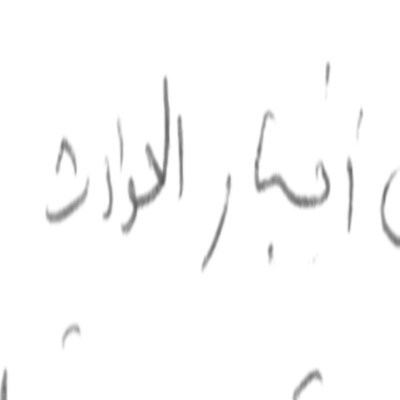 أخبار الحوادث